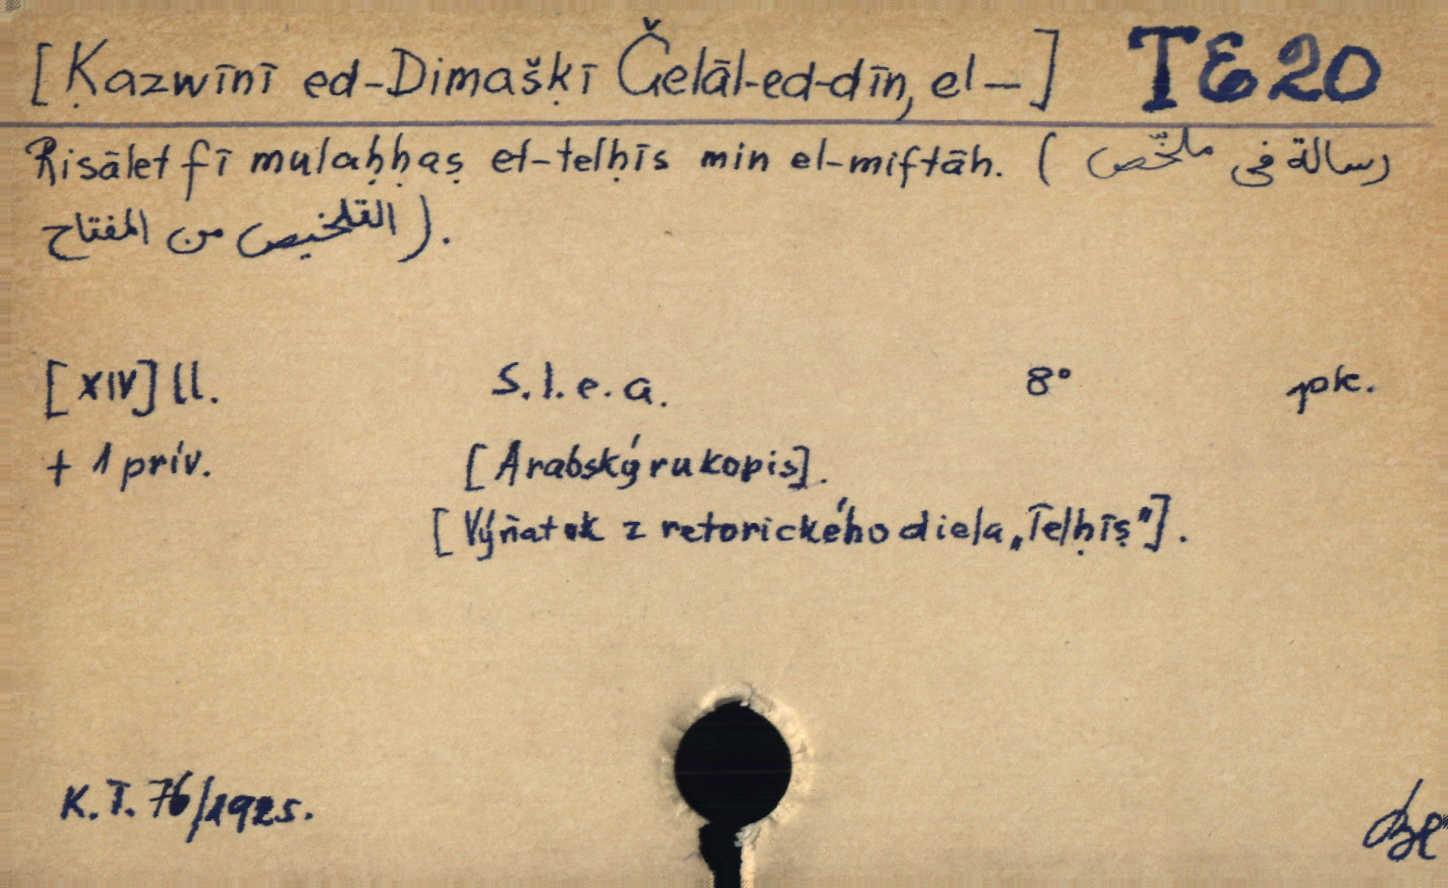 [Ḳazwīnī ed-Dimašḳī Ǧelāl-ed-dīn, el-] TE20
Risālet fī mulaḥḥaṣ et-telḥīs min el-miftāh. (رسالة فى ملخّص
التلخيص من المفتاح).
[XIV] ll. S.l.e.a. 8° pk.
+ 1 prív. [Arabský rukopis].
[Výňatok z retorického diela „Telḥīṣ"].
K.T. 76/1925.